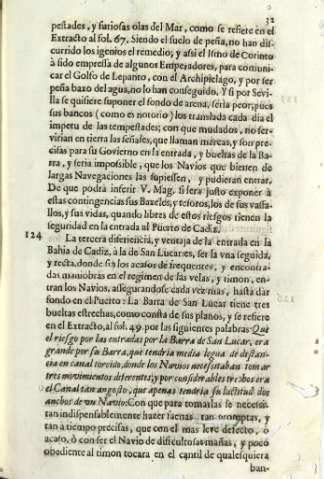 32
pestades, y furiosas olas del Mar, como se refiere en el
Extracto al fol. 67. Siendo el suelo de peña, no han dis-
currido los igenios el remedio; y assi el Ismo de Corinto
à sido empressa de algunos Emperadores, para comuni-
car el Golfo de Lepanto, con el Archipielago, y por ser
peña baxo del agua, no lo han conseguido. Y si por Sevi-
lla se quisiere suponer el fondo de arena, seria peor, pues
sus bancos (como es notorio) los translada cada dia el
impetu de las tempestades; con que mudados, no ser-
virian en tierra las señales, que llaman marcas, y son pre-
cisas para su Govierno en la entrada, y bueltas de la Ba-
rra, y seria impossible, que los Navios que bienen de
largas Navegaciones las supiessen, y pudieran entrar.
De que podra inferir V. Mag. si sera justo exponer à
estas contingencias sus Baxeles, y tesoros, los de sus vasa-
llos, y sus vidas, quando libres de estos riesgos tienen la
seguridad en la entrada al Puerto de Cadiz.
124 La tercera diferencia, y ventaja de la entrada en la
Bahia de Cadiz, à la de San Lucar es, ser la vna seguida,
y recta, donde sin los acasos de frequentes, y encontra-
das maniobras en el regimen de las velas, y timon, en-
tran los Navios, assegurandose cada vez mas, hasta dar
fondo en el Puerto: La Barra de San Lucar tiene tres
bueltas estrechas, como consta de sus planos, y se refiere
en el Extracto, al fol. 49. por las siguientes palabras: Que
el riesgo por las entradas por la Barra de San Lucar, era
grande por su Barra, que tendria media legua de distan-
cia en canal torcido, donde los Navios necessitaban tomar
tres movimientos diferentes; y por considerables trechos era
el Canal tan angosto, que apenas tendria su latitud dos
anchos de un Navio: Con que para tomarlas se necessi-
tan indispensablemente hazer faenas tan promptas, y
tan à tiempo precisas, que con el mas leve defecto, ò
acaso, ò con ser el Navio de dificultosas mañas, y poco
obediente al timon tocara en el cantil de qualesquiera
ban-